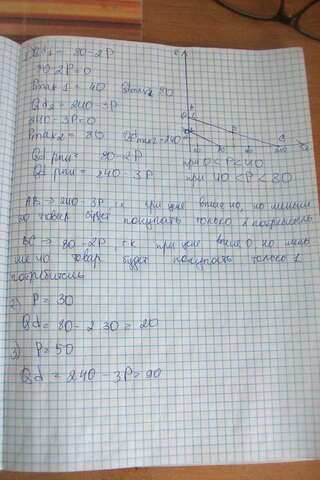 Qd1 = 80-2P
80-2P=0
Pmax 1 = 40 Qdmax 80
Qd2 = 240-3P
240-3P=0
Pmax2 = 80 Qdmax2=240
Qd рын = 80-2P при 0<P<40
Qd рын = 240-3P при 40<P<80
AB → 240-3P т.к при цене выше 40, но меньше
80 товар будет покупать только
BC → 80-2P т.к при цене выше 0, но мень
ше 40 товар будет покупать только 1
потребитель
2) P = 30
Qd = 80-2 30 = 20
3) P=50
Qd = 240-3P=90